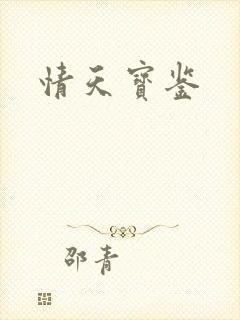 情天寳鉴
邵青